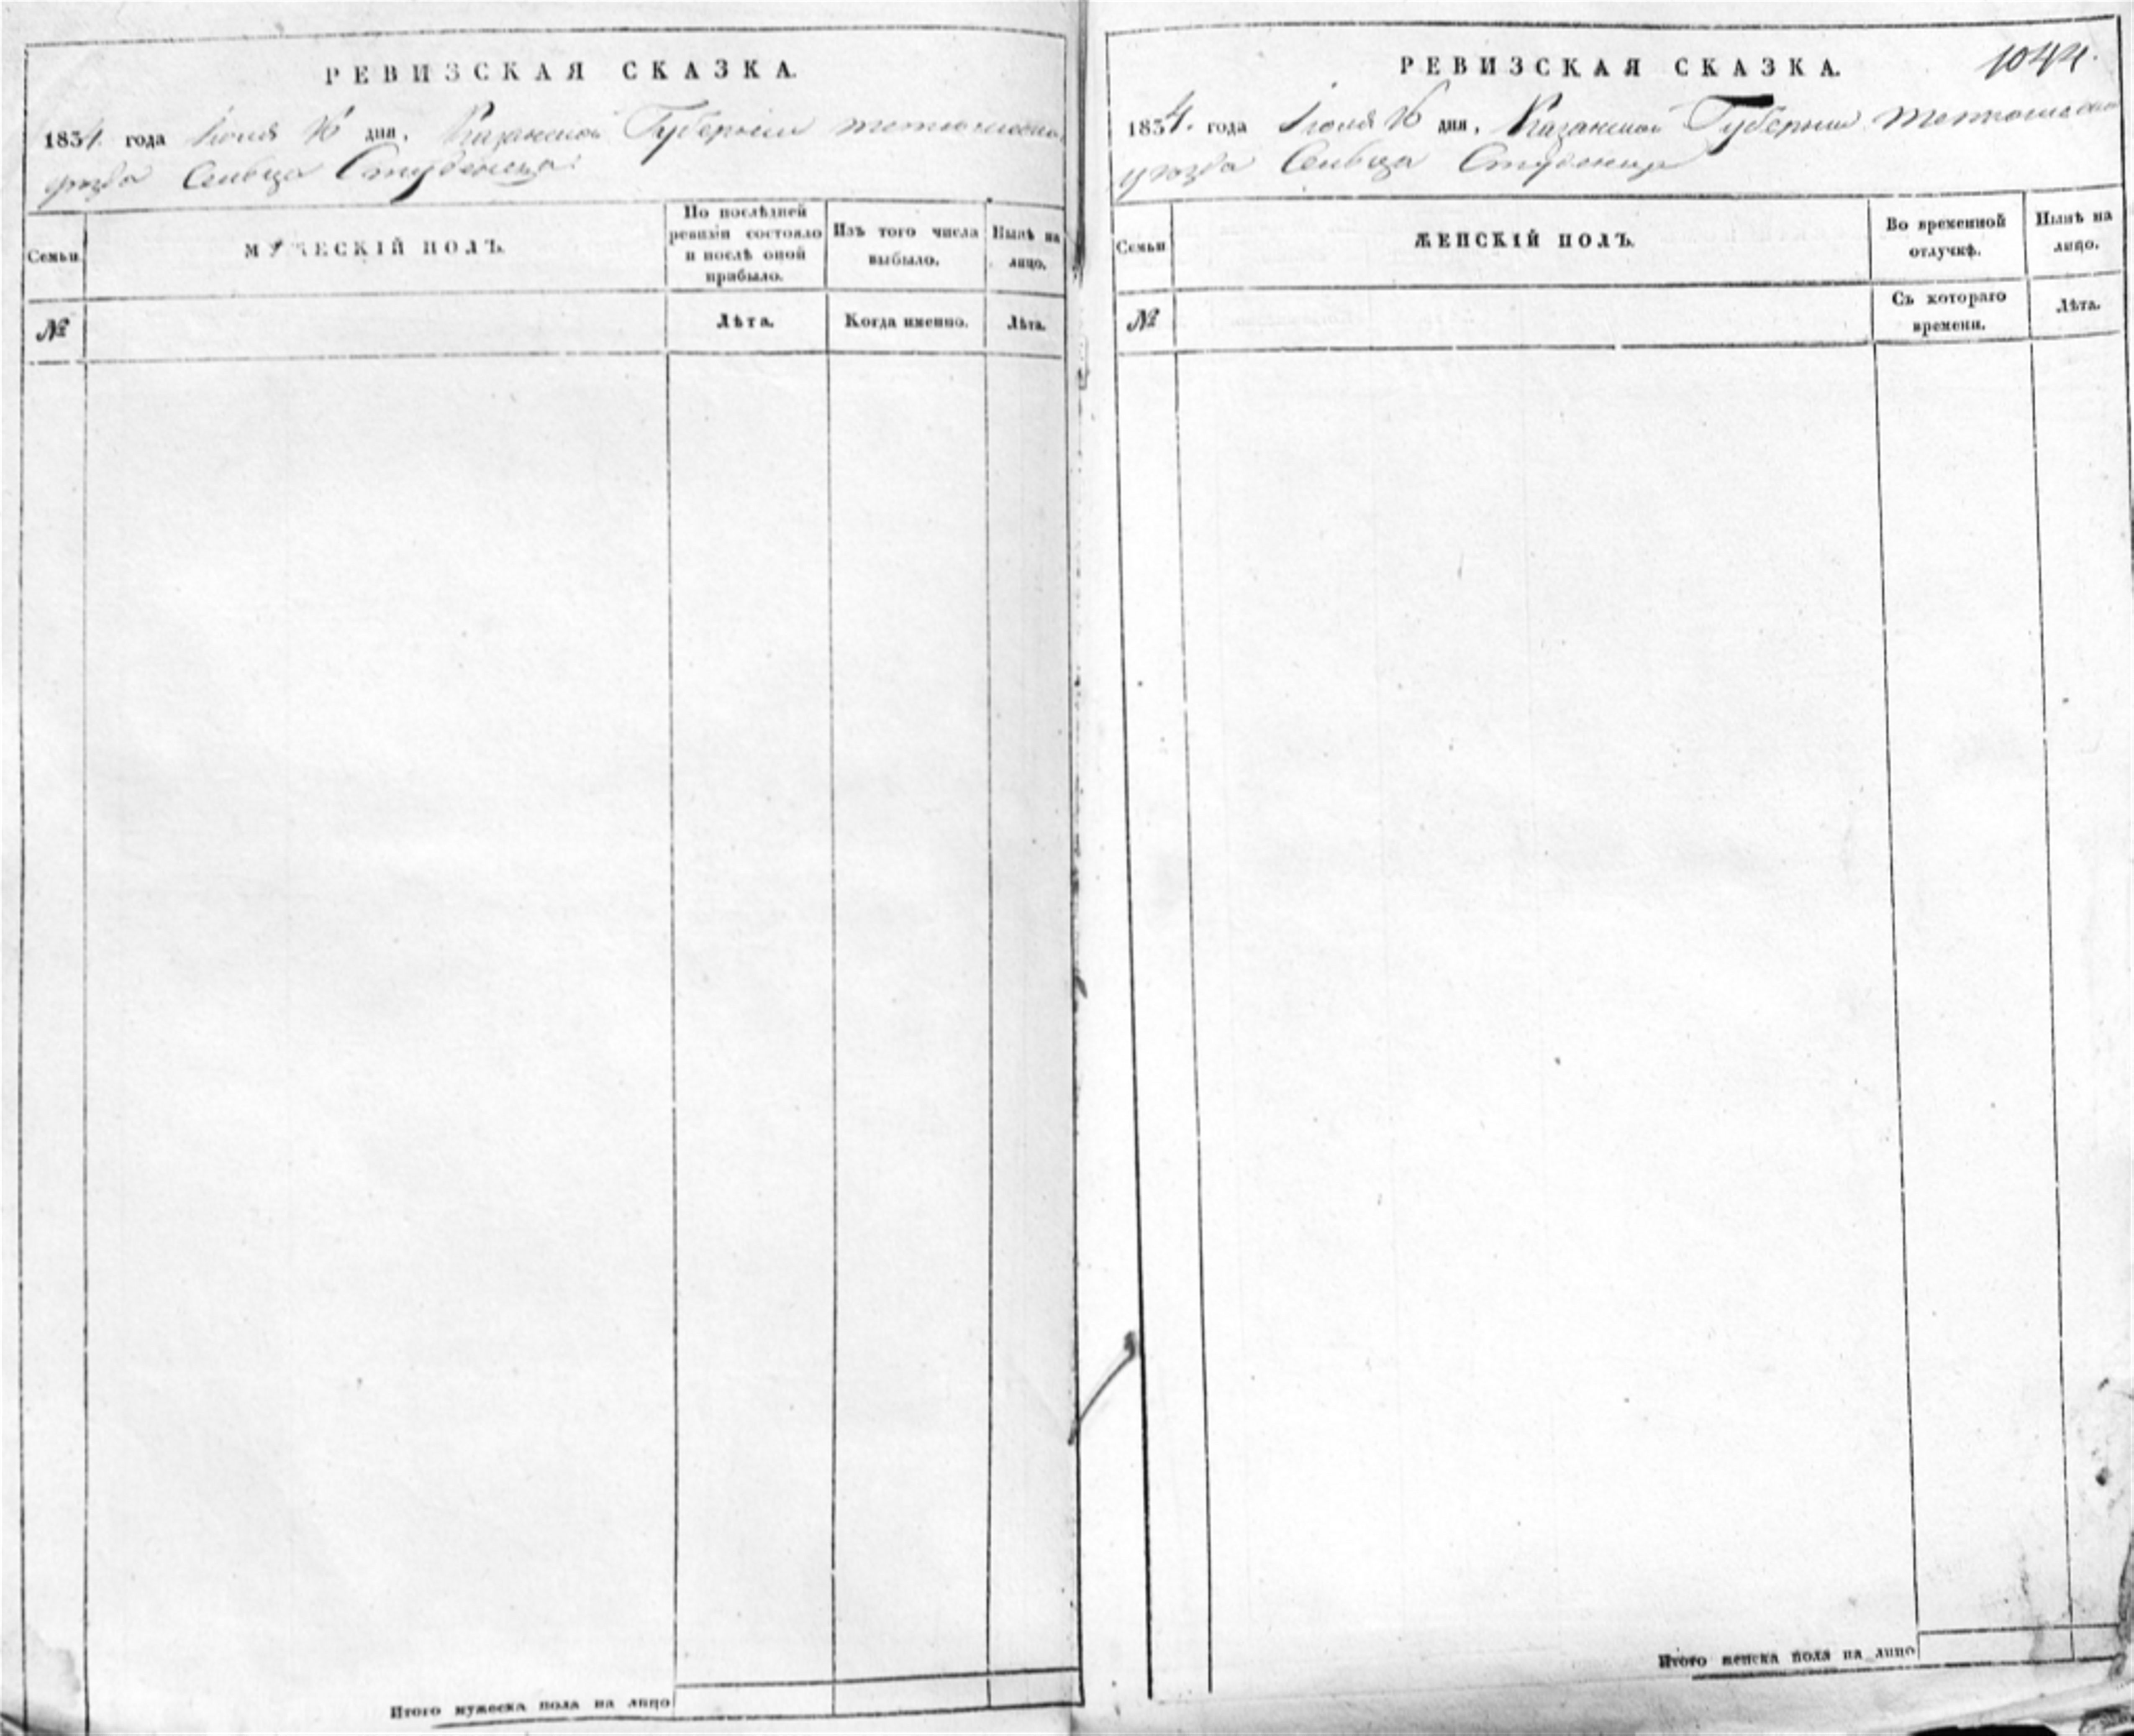 РЕВИЗСКАЯ СКАЗКА.
1834. года Июня дня, Казанской Губернии Тетюшскаго
уѣзда Сельца Студенца.
Семьи.
МУЖЕСКІЙ ПОЛЪ.
По послѣдней
ревизіи состояло
и послѣ оной
прибыло.
Изъ того числа
выбыло.
Нынѣ на
лицо.
№
Лѣта.
Когда именно.
Лѣта.
Итого мужеска пола на лицо
РЕВИЗСКАЯ СКАЗКА.
1044.
1834. года Июня дня, Казанской Губернии Тетюшскаго
уѣзда Сельца Студенца
Семьи
ЖЕНСКІЙ ПОЛЪ.
Во временной
отлучкѣ.
Нынѣ на
лицо.
№
Съ котораго
времени.
Лѣта.
Итого женска пола на лицо